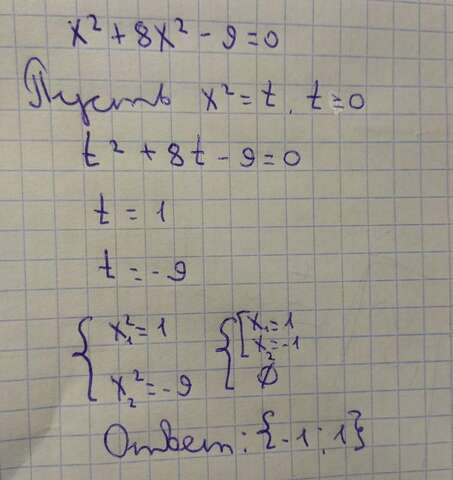 x² + 8x² - 9 = 0
Пусть x² = t, t ≥ 0
t² + 8t - 9 = 0
t = 1
t = -9
{ x₁² = 1 { [ x₁ = 1
x₂ = -1
x₂² = -9 ∅
Ответ: {-1; 1}